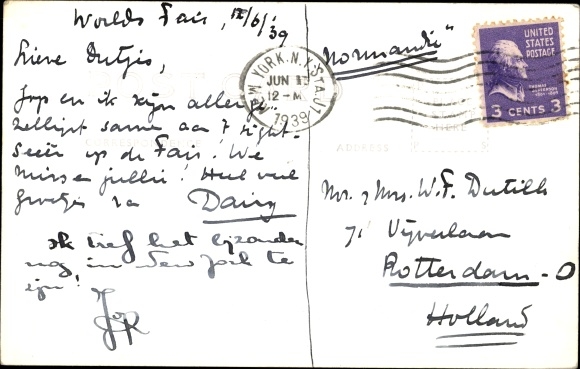 Worlds Fair, 12/6/'39
Lieve Dutjes,
Jop en ik zijn allergezelligst samen aan 't sight-
seeën op de Fair! We
missen jullie! Heel veel
Groetjes van Daisy
Ik tref het bijzonder
nog in New York te
zijn! Jop
NEW YORK, N.Y. STA. U
JUN 12
12-M
1939
"Normandie"
UNITED
STATES
POSTAGE
THOMAS
JEFFERSON
3 CENTS 3
ADDRESS
HERE
Mr. & Mrs. W.F. Dutilh
71 Vijverlaan
Rotterdam - O
Holland